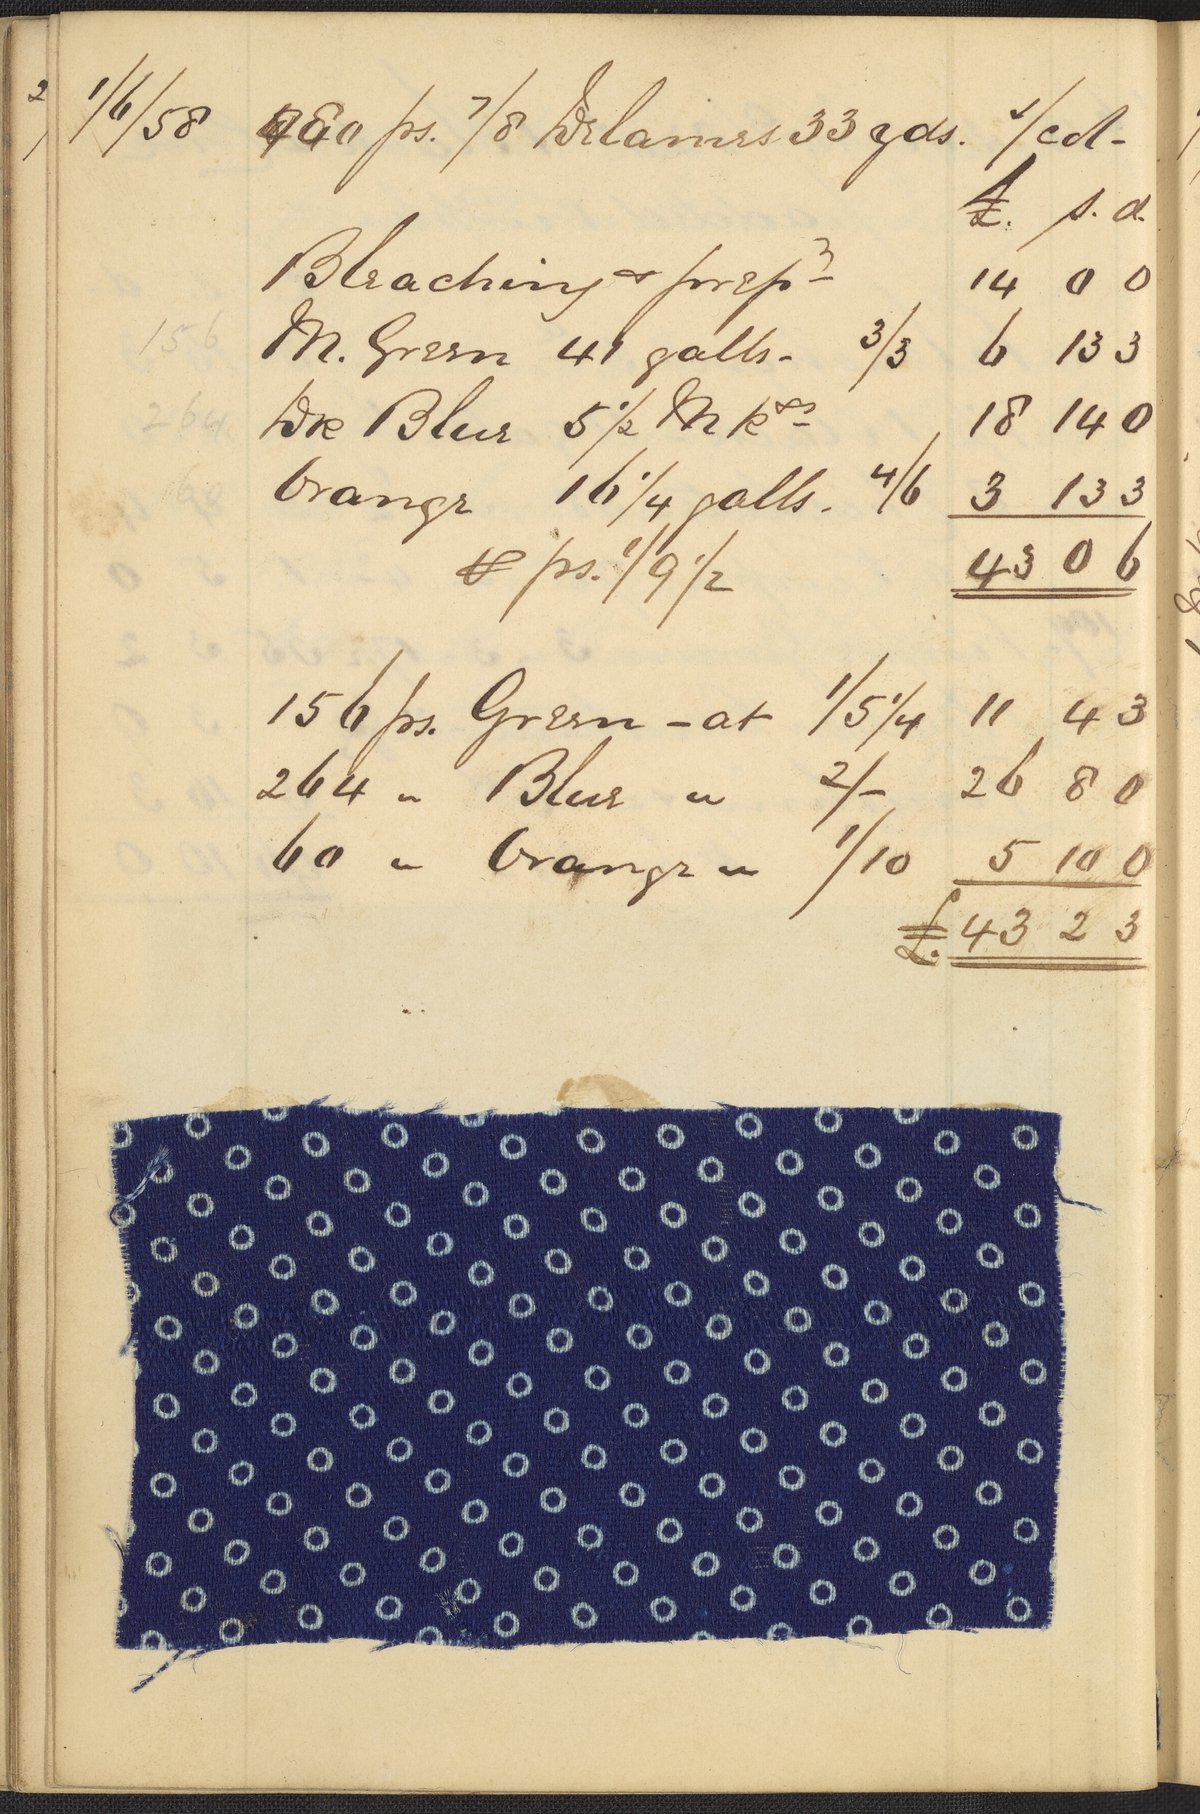 2/ 1/6/58 480 ps. 7/8 Delaines 33 yds. 1/col-
£. s. d.
Bleaching & prepn 14 0 0
156 M. Green 41 galls. 3/3 6 13 3
264 Dk Blue 5 1/2 M ks 18 14 0
Orange 16 1/4 galls. 4/6 3 13 3
ps. 1/9 1/2 43 0 6
156 ps. Green - at 1/5 1/4 11 4 3
264 " Blue " 2/- 26 8 0
60 " Orange " 1/10 5 10 0
£. 43 2 3